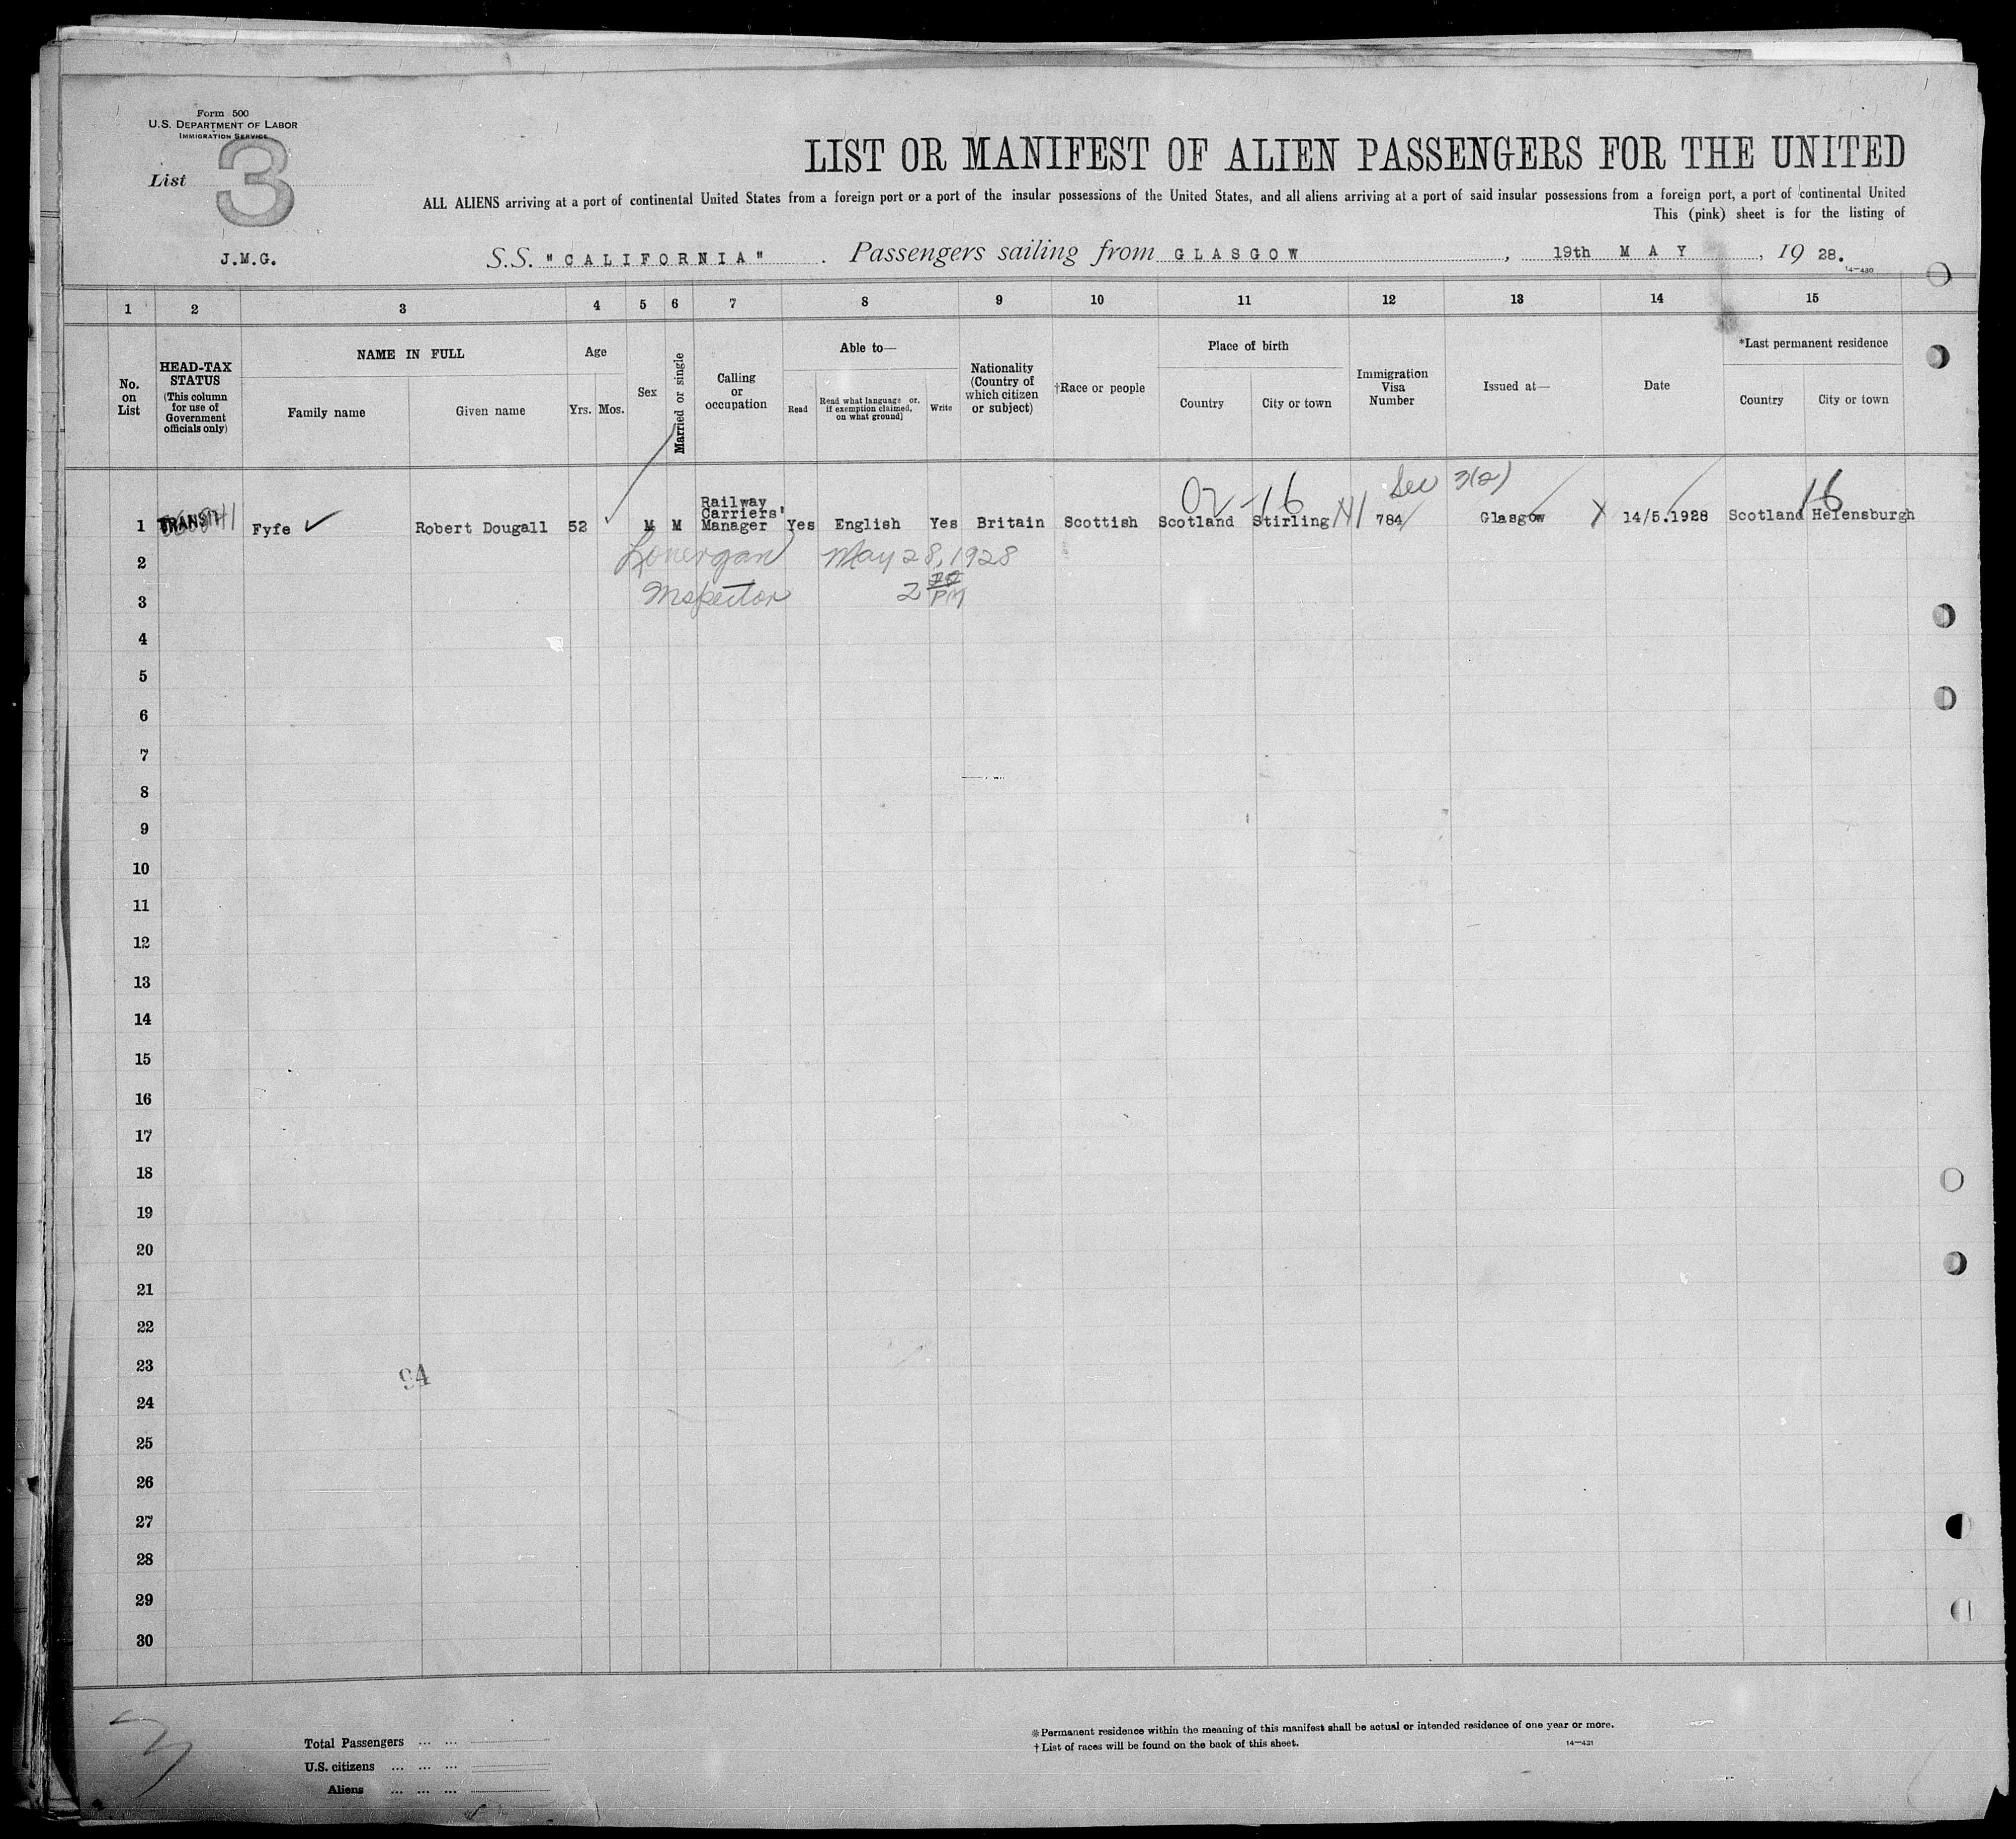 Form 500
U.S. DEPARTMENT OF LABOR
IMMIGRATION SERVICE
List 3
J.M.G.
LIST OR MANIFEST OF ALIEN PASSENGERS FOR THE UNITED
ALL ALIENS arriving at a port of continental United States from a foreign port or a port of the insular possessions of the United States, and all aliens arriving at a port of said insular possessions from a foreign port, a port of continental United
This (pink) sheet is for the listing of
S.S. "CALIFORNIA" . Passengers sailing from GLASGOW , 19th MAY , 19 28.
14—430
1 2 3 4 5 6 7 8 9 10 11 12 13 14 15
No. on List
HEAD-TAX STATUS (This column for use of Government officials only)
NAME IN FULL
Family name
Given name
Age
Yrs. Mos.
Sex
Married or single
Calling or occupation
Able to—
Read
Read what language or, if exemption claimed, on what ground]
Write
Nationality (Country of which citizen or subject)
†Race or people
Place of birth
Country
City or town
Immigration Visa Number
Issued at—
Date
*Last permanent residence
Country
City or town
02-16 Sec 3(2) 16
1 TRANSIT Fyfe ✓ Robert Dougall 52 M M Railway Carriers' Manager Yes English Yes Britain Scottish Scotland Stirling 784 Glasgow 14/5.1928 Scotland Helensburgh
2 Lonergan May 28, 1928
3 Inspector 2 PM
4
5
6
7
8
9
10
11
12
13
14
15
16
17
18
19
20
21
22
23
94
24
25
26
27
28
29
30
Total Passengers ... ...
U.S. citizens ... ... ...
Aliens ... ... ...
*Permanent residence within the meaning of this manifest shall be actual or intended residence of one year or more.
†List of races will be found on the back of this sheet.
14—431